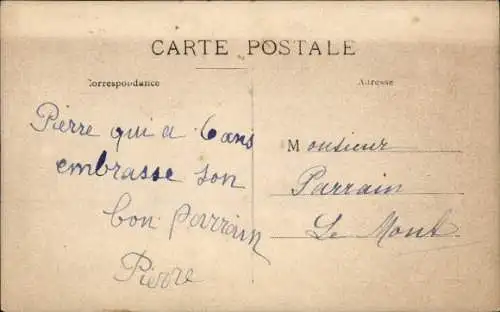 CARTE POSTALE
Correspondance
Adresse
Pierre qui a 6 ans
embrasse son
bon parrain
Pierre
Monsieur
Parrain
Le Mont.